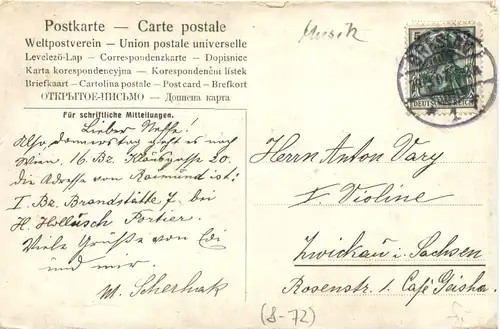 Postkarte — Carte postale
Weltpostverein — Union postale universelle
Levelező-Lap — Correspondenzkarte — Dopisnice
Karta korespondencyjna — Korespondenční lístek
Briefkaart — Cartolina postale — Post card — Brefkort
ОТКРЫТОЕ-ПИСЬМО — Дописна карта
Für schriftliche Mitteilungen.
Musik
DEUTSCHES REICH
Lieber Neffe!
Also, donnerstag geht es nach
Wien. 16 Bz. 20.
die Adresse von Raimund ist:
I Bz. Brandstätte 7. bei
H. Hollusch Portier.
Viele Grüße von Edi
und mir.
M. Scherhak
Herrn Anton Vary
I Violine
Zwickau i. Sachsen
Rosenstr. 1. Café Geisha.
(8-72)